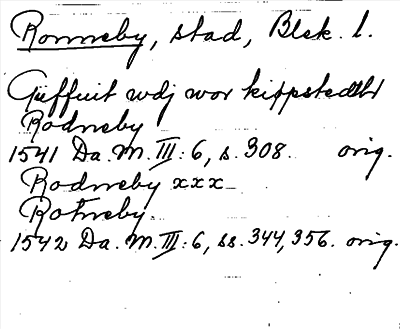 Ronneby, stad, Blek. l.
Giffuit wdj wor kiøpstedt
Rodneby
1541 Da. M. III: 6, s. 308. orig.
Rodneby xxx
Rotneby.
1542 Da. M. III: 6, ss. 344, 356. orig.